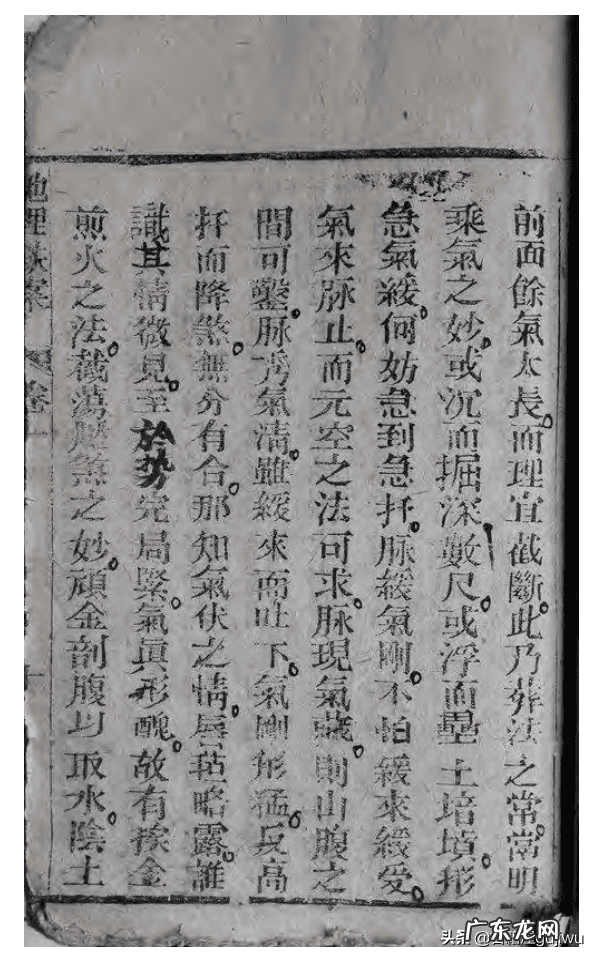 前面餘氣太長。而理宜截斷。此乃葬法之常。當明
乘氣之妙。或沉而掘深數尺。或浮而壘土培墳。形
急氣緩。何妨急到急扦。脉緩氣剛。不怕緩來緩受。
氣來脉止。而元空之法可求。脉現氣藏。則山腹之
間可鑿。脉秀氣清。雖緩來而吐下。氣剛形猛。反高
扦而降煞。無分有合。那知氣伏之情。唇毡略露。誰
識其情微見。至於势完局緊。氣眞形醜。故有挨金
煎火之法。截蕩壓煞之妙。頑金剖腹以取水。陰土
地理鉄案
卷
头条
广东龙网